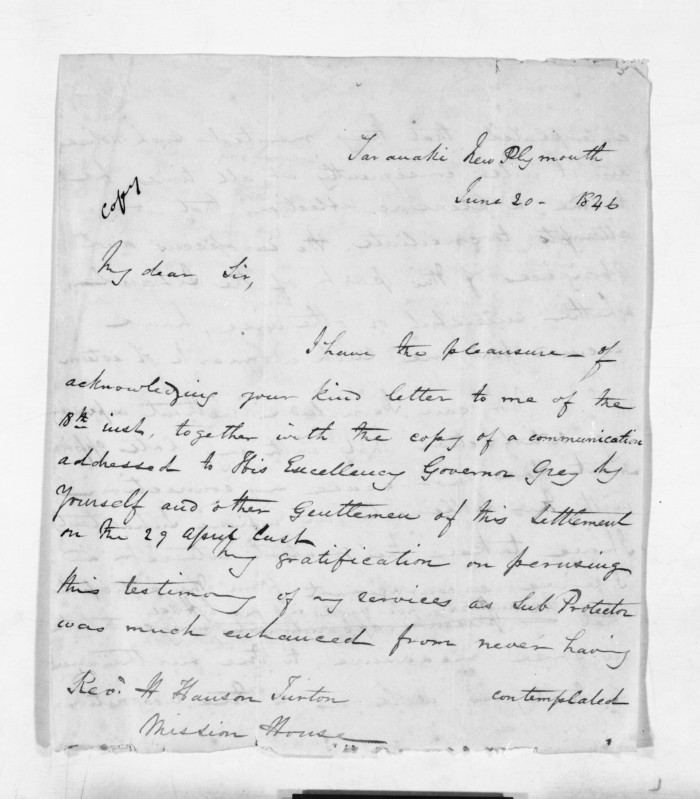 Taranaki New Plymouth
June 20 - 1846
Copy
My dear Sir,
I have the pleausure - of
acknowledging your kind letter to me of the
18th inst, together with the copy of a communication
addressed to His Excellency Governor Grey by
Yourself and other Gentlemen of this Settlement
on the 29 April last
My gratification on perusing
this testimony of my services as Sub Protector
was much enhanced from never having
contemplated
Revd. H Hanson Turton
Mission House